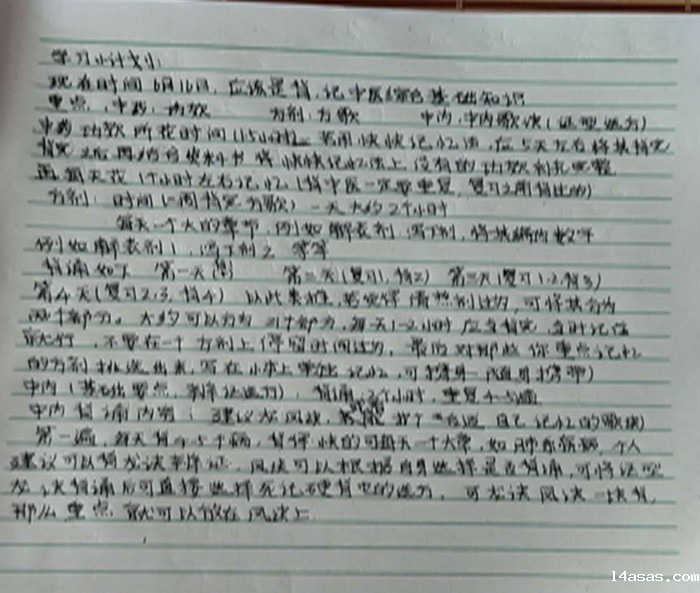 学习小计划:
现在时间6月16日,应该是背、记中医综合基础知识
重点:中药:功效 方剂:方歌 中内:中内歌诀(证型选方)
中药功效所花时间15小时,若用快快记忆法,在5天左右将其搞定
搞定之后 将快快记忆法上没有的功效补充完整
再每天花1个小时左右记忆(背中医一定要重复,复习之前背过的)
方剂:时间(一周搞定方歌)一天大约2个小时
每天一个大的章节,例如解表剂,泻下剂,将其
例如解表剂1,泻下剂2等等
背诵如下 第一天(背1) 第二天(复习1,背2) 第三天(复习1.2,背3)
第4天(复习2.3,背4)以此类推,若觉得清热剂过多,可将其分为
两个部分。大约可以分为21个部分,每天1-2小时应当搞定,当时记住
就行,不要在一个方剂上停留时间过多,最后对那些你重点记忆
的方剂挑选出来,写在小本上单独记忆,可
中内(基础要点,辨证选方),背诵:2个小时,重复4-5遍
中内背诵内容:建议龙诀风诀, 自己记忆的歌诀)
第一遍,每天背4-5个病,背得快的可每天一个大章,如肺系疾病,个人
建议可以背龙诀辨证,风诀可以根据自身选择是否背诵,可将证型
龙诀背诵后可直接选择死记硬背它的选方,可龙诀风诀一块背,
那么重点就可以放在风诀上
14asas.com